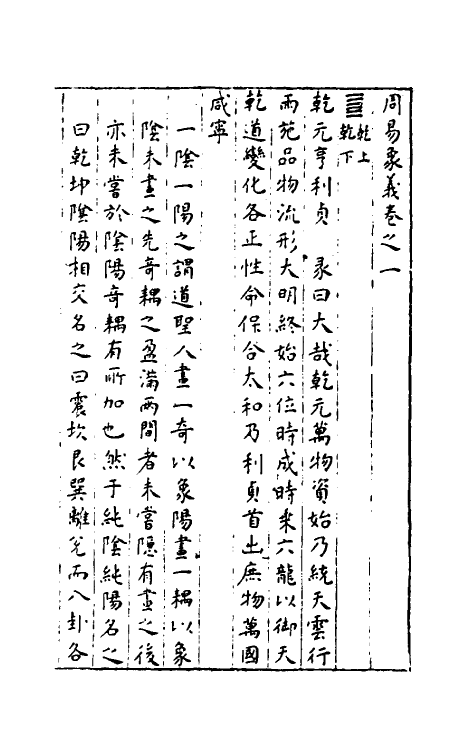 周易象義卷之一
䷀乾上乾下
乾元亨利貞　彖曰大哉乾元萬物資始乃統天雲行
雨施品物流形大明終始六位時成時乗六龍以御天
乾道變化各正性命保合太和乃利貞首出庶物萬國
咸寧
一陰一陽之謂道聖人畫一奇以象陽畫一耦以象
陰未畫之先奇耦之盈滿兩間者未嘗隱有畫之後
亦未嘗於陰陽奇耦有所加也然于純陰純陽名之
曰乾坤陰陽相交名之曰震坎艮巽離兌而八卦各